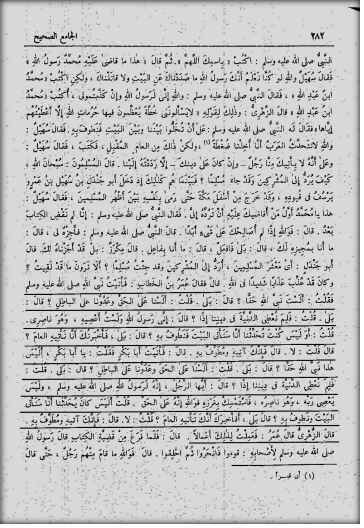 ٢٨٢ الجامع الصحيح
النَّبِيُّ صلى الله عليه وسلم : اكْتُبْ « بِاسمِكَ اللَّهمَّ » . ثُمَّ قالَ « هٰذا ما قاضىٰ عَلَيْهِ مُحمَّدٌ رَسُولُ اللهِ »
فقالَ سُهَيْلٌ واللهِ لو كُنَّا نَعْلَمُ أنَّكَ رَسُولُ اللهِ ما صَدَدْناكَ عنِ البَيْتِ ولا قاتَلْناكَ ، ولكِنِ اكْتُبْ « مُحمَّدُ
ابنُ عبدِ اللهِ » ، فقالَ النَّبيُّ صلى الله عليه وسلم : واللهِ إنِّي لَرَسُولُ اللهِ وإنْ كَذَّبْتُمُوني ، أُكْتُبْ « مُحمَّدُ
ابنُ عبدِ اللهِ » قالَ الزُّهْرِيُّ : وذلِكَ لِقَوْلِهِ « لايَسْألُونَنِي خُطَّةً يُعَظِّمُونَ فيها حُرُماتِ اللهِ إلَّا أعْطَيْتُهُمْ
إيَّاها » فقالَ لَهُ النَّبيُّ صلى الله عليه وسلم : عَلىٰ أنْ تُخَلُّوا بَيْنَنا وبَيْنَ البَيْتِ فَنَطُوفَ بهِ . فقالَ سُهَيْلٌ :
واللهِ لاتَتَحَدَّثُ العَرَبُ أنَّا أُخِذْنا ضُغْطَةً (١) ، ولكِنْ ذلِكَ مِنَ العامِ المُقْبِلِ ، فَكَتَبَ ، فقالَ سُهَيْلٌ :
وعَلىٰ أنَّهُ لا يأتِيكَ مِنَّا رَجُلٌ – وإنْ كانَ عَلىٰ دِينِكَ – إلَّا رَدَدْتَهُ إلَيْنا . قالَ المُسْلِمُونَ : سُبْحانَ اللهِ ،
كَيْفَ يُرَدُّ إلى المُشْرِكِينَ وقَدْ جاءَ مُسْلِمًا ؟ فَبَيْنَما هُمْ كذٰلِكَ إذ دَخَلَ أبو جَنْدَلِ بنُ سُهَيْلِ بنِ عَمرٍو
يَرْسُفُ في قُيُودِهِ ، وقَدْ خَرَجَ مِنْ أسْفَلِ مَكَّةَ حتَّى رَمىٰ بِنَفْسِهِ بَيْنَ أظْهُرِ المُسْلِمِينَ ، فقالَ سُهَيْلٌ :
هٰذا يامُحَمَّدُ أوَّلُ مَنْ أُقاضِيكَ عَلَيْهِ أنْ تَرُدَّهُ إليَّ . فقالَ النَّبيُّ صلى الله عليه وسلم : إنَّا لم نَقْضِ الكِتابَ
بَعْدُ . قالَ : فَوَاللهِ إذًا لم أُصالِحْكَ عَلىٰ شَيْءٍ أبَدًا . قالَ النَّبيُّ صلى الله عليه وسلم : فأجِزْهُ لي ، قالَ :
ما أنا بِمُجِيزِهِ لَكَ ، قالَ : بَلىٰ فافْعَلْ ، قالَ : ما أنا بِفاعِلٍ . قالَ مِكْرَزٌ : بَلْ قَدْ أجَزْناهُ لَكَ . قالَ
أبو جَنْدَلٍ : أيْ مَعْشَرَ المُسْلِمِينَ ، أُرَدُّ إلى المُشْرِكِينَ وقد جِئْتُ مُسْلِمًا ؟ ألا تَرَوْنَ ما قَدْ لَقِيتُ ؟
وكانَ قَدْ عُذِّبَ عَذابًا شَدِيدًا في اللهِ . قالَ فقالَ عُمَرُ بنُ الخَطابِ : فأتَيْتُ نَبِيَّ اللهِ صلى الله عليه وسلم
فَقُلْتُ : ألَسْتَ نَبِيَّ اللهِ حَقًّا ؟ قالَ : بَلىٰ . قُلْتُ : ألَسْنا عَلىٰ الحَقِّ وعَدُوُّنا عَلىٰ الباطِلِ ؟ قالَ :
بَلىٰ . قُلْتُ : فَلِمَ نُعْطِي الدَّنِيَّةَ في دِينِنا إذًا ؟ قالَ : إنِّي رَسُولُ اللهِ ولَسْتُ أعْصِيهِ ، وَهْوَ ناصِرِي .
قُلْتُ : أوَ لَيْسَ كُنْتَ تُحَدِّثُنا أنَّا سَنَأْتي البَيْتَ فَنَطُوفُ بهِ ؟ قالَ : بَلىٰ ، فأخْبَرْتُكَ أنَّا نَأتِيهِ العامَ ؟
قالَ قُلْتُ : لا . قالَ فإنَّكَ آتِيهِ ومُطَّوِّفٌ بهِ . قالَ : فأتَيْتُ أبا بَكْرٍ فَقُلْتُ : يا أبا بَكْرٍ ، ألَيْسَ
هٰذا نَبِيَّ اللهِ حَقًّا ؟ قالَ : بَلىٰ . قُلْتُ : ألَسْنا عَلىٰ الحَقِّ وعَدُوُّنا عَلىٰ الباطِلِ ؟ قالَ : بَلىٰ . قلت :
فَلِمَ نُعْطِي الدَّنِيَّةَ في دِينِنا إذًا ؟ قالَ : أيُّها الرَّجُلُ . إنَّهُ لَرَسُولُ اللهِ صلى الله عليه وسلم ، ولَيْسَ
يَعْصِي رَبَّهُ ، وَهْوَ ناصِرُهُ ، فاسْتَمْسِكْ بِغَرْزِهِ فَوَاللهِ إنَّهُ عَلىٰ الحَقِّ . قُلْتُ ألَيْسَ كانَ يُحَدِّثُنا أنَّا سَنَأْتي
البَيْتَ ونَطُوفُ بهِ ؟ قالَ بَلىٰ ، أفَأخْبَرَكَ أنَّكَ تَأتِيهِ العامَ ؟ قُلْتُ : لا . قالَ : فإنَّكَ آتِيهِ ومُطَّوِّفٌ بهِ .
قالَ الزُّهْرِيُّ قالَ عُمَرُ : فَعَمِلْتُ لِذٰلِكَ أعْمالًا . قالَ : فَلَمَّا فَرَغَ مِنْ قَضِيَّةِ الكِتابِ قالَ رَسُولُ اللهِ
صلى الله عليه وسلم لأصْحابِهِ : قُومُوا فانْحَرُوا ثُمَّ احْلِقُوا . قالَ فَوَاللهِ ما قامَ مِنْهُمْ رَجُلٌ ، حتَّى قالَ
(١) أى قسراً .